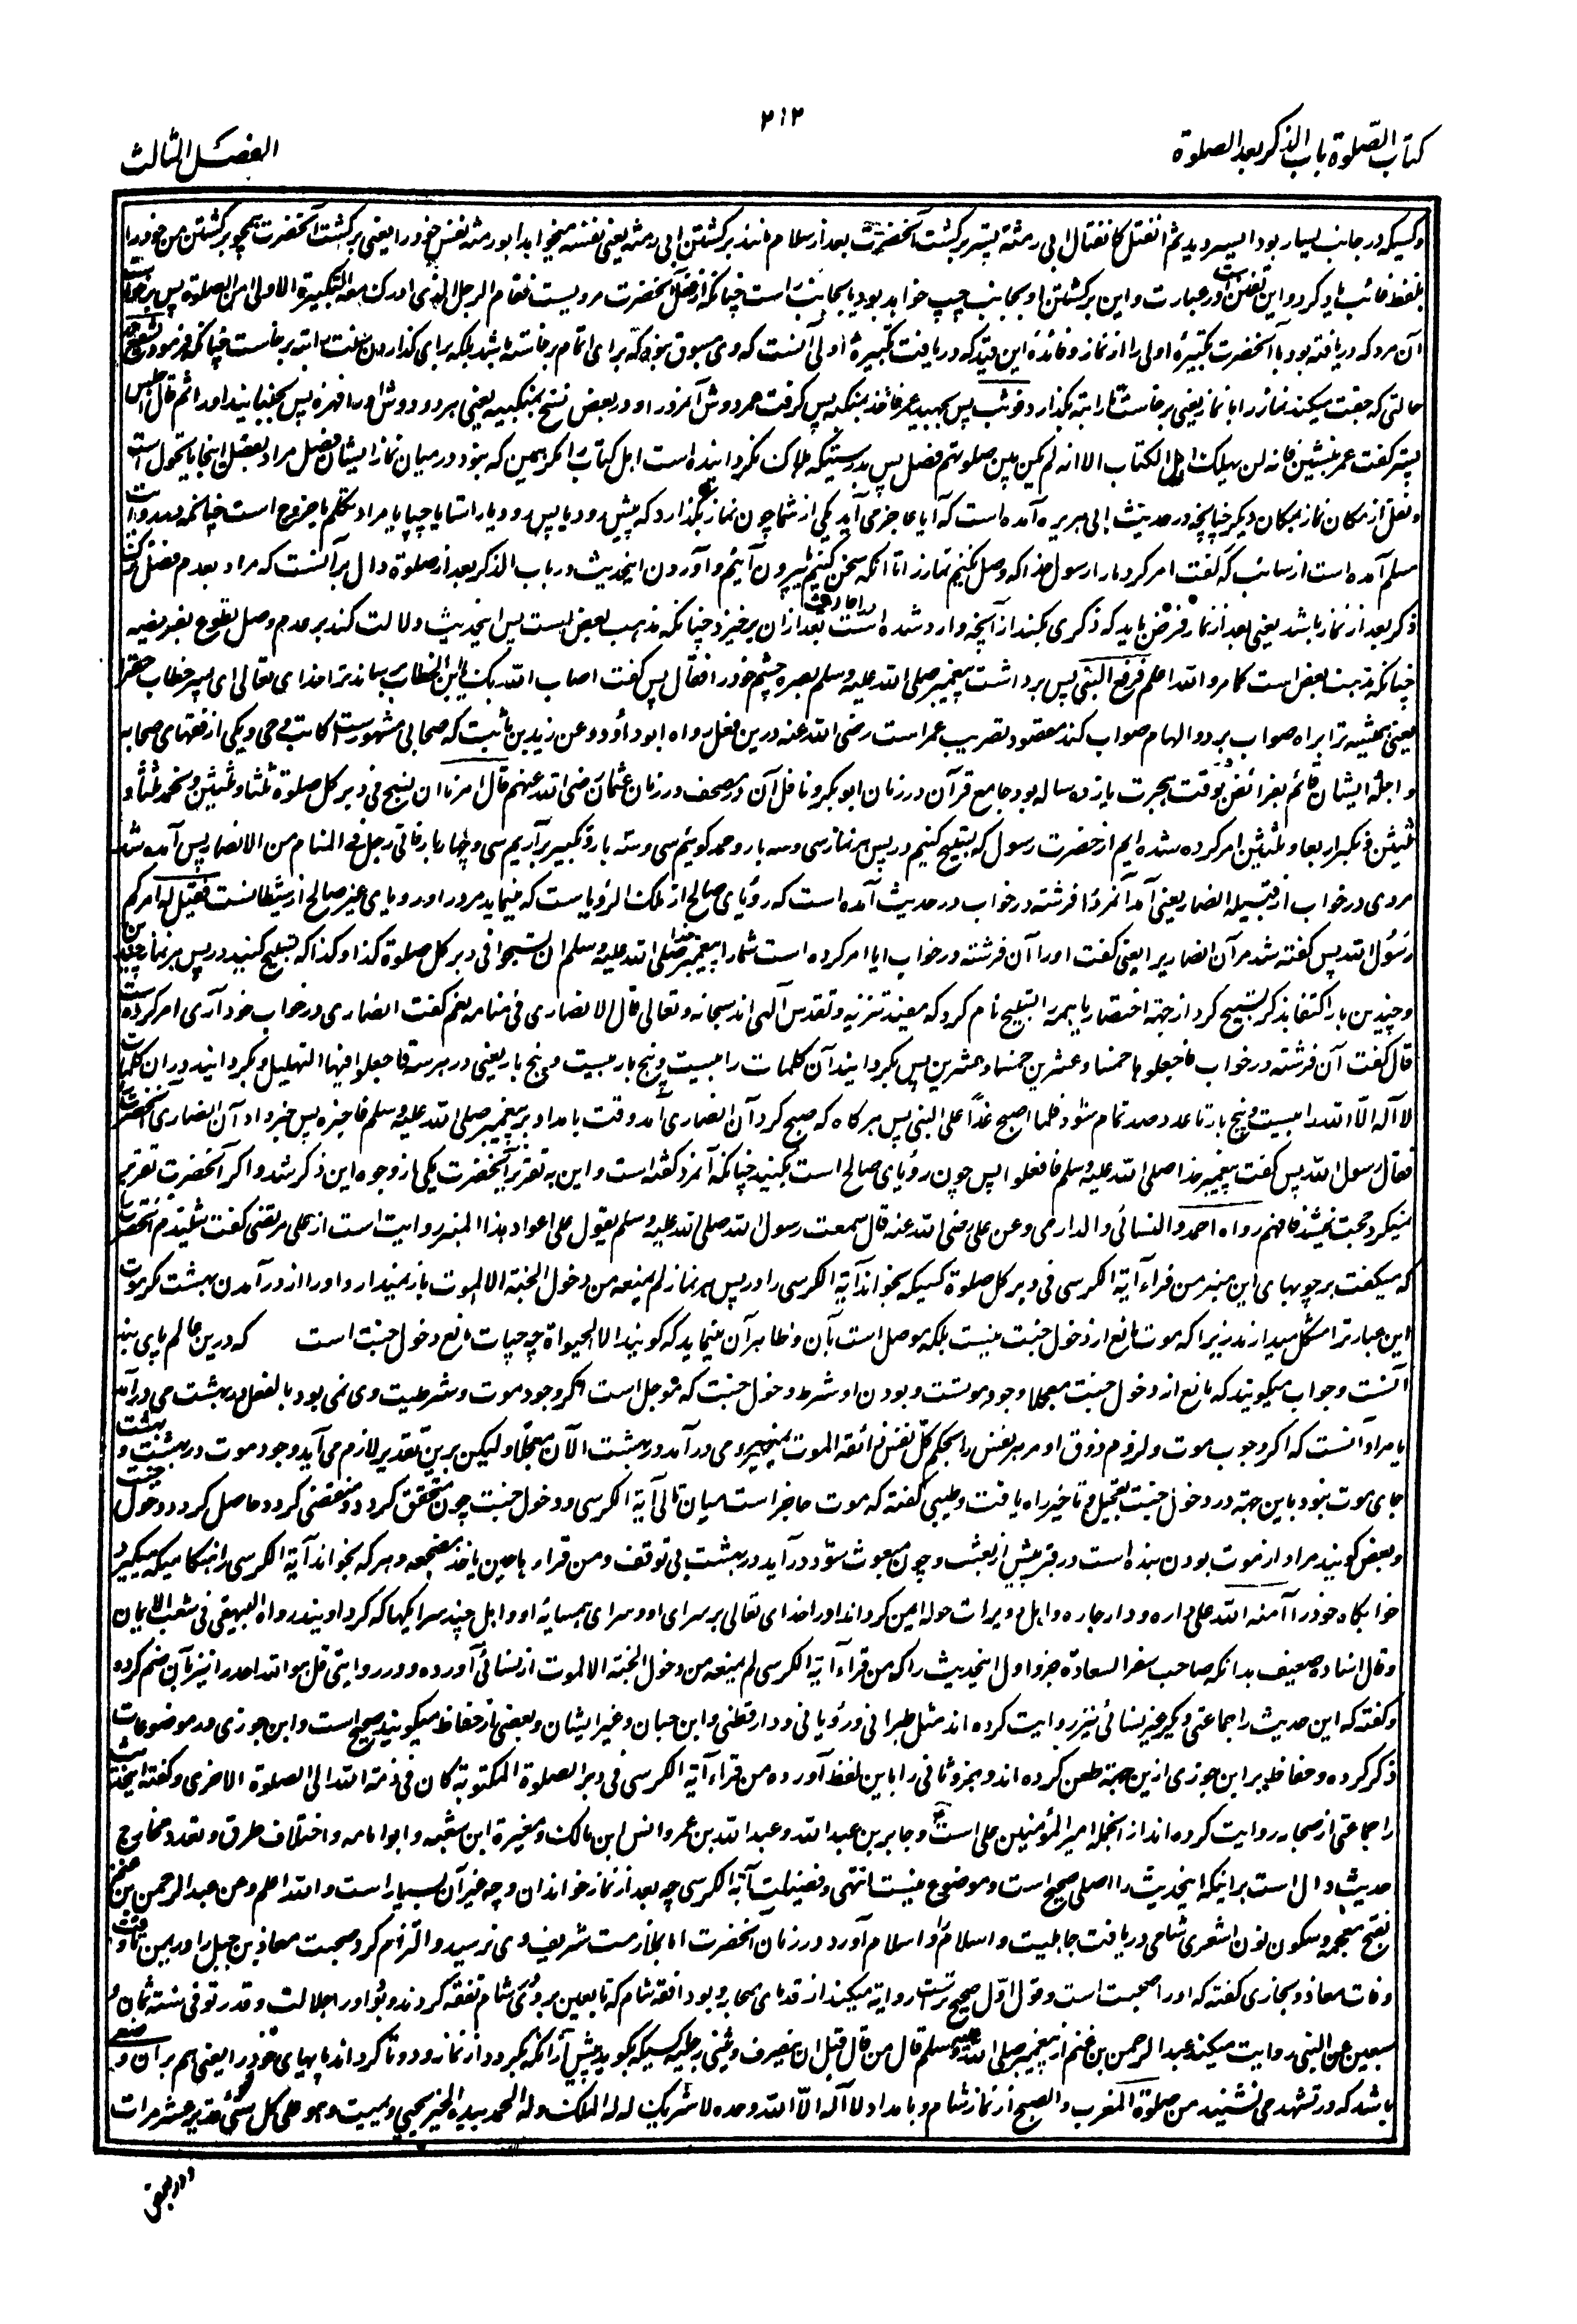 كتاب الصلوة باب الذكر بعد الصلوة
۲۱۲
الفصل الثالث
وكسيكه در جانب يسار بود ايسر و يد ثم انفتل كانفتال ابى رمثة پستر برگشت آنحضرت بعد از سلام مانند برگشتن ابى رمثه يعنى نفسه ميخواهد ابو رمثه نفس خود را يعنى برگشت آنحضرت همچو برگشتن من خود را
بلفظ غائب ياد كرد و اين تفنن است در عبارت و اين برگشتن او بجانب چپ خواهد بود يا بجانب راست چنانكه از فعل آنحضرت مرويست فقام الرجل الذى ادرك معه التكبيرة الاولى من الصلوة پس برخاست
آن مرد كه دريافته بود با آنحضرت تكبيرۀ اولى را از نماز و فائدۀ اين قيد كه دريافت تكبيرۀ اولى آنست كه وى مسبوق نبود كه براى اتمام برخاسته باشد بلكه براى گذاردن سنت راتبه برخاست چنانكه فرمود يشفع
حالتى كه جفت ميكند نماز را با نماز يعنى برخاست تا راتبه بگذارد فوثب پس بجهيد عمر فاخذ بمنكبه پس گرفت عمر دوش آنمرد را و در بعض نسخ بمنكبيه يعنى هر دو دوش او را فهزه پس بجنبانيد او را ثم قال اجلس
پستر گفت عمر بنشين فانه لن يهلك اهل الكتاب الا انه لم يكن بين صلوتهم فصل پس بدرستيكه هلاك نگردانيده است اهل كتاب را مگر همين كه نبود در ميان نماز ايشان فصل مراد بفصل اينجا يا تحول است
و نقل از مكان نماز بمكان ديگر چنانچه در حديث ابى هريره آمده است كه آيا عاجز مى آيد يكى از شما چون نماز بگذارد كه پيش رود يا پس رود يا راستا يا چپا يا مراد تكلم يا خروج است چنانچه در روايت
مسلم آمده است از سائب كه گفت امر كرد ما را رسول خدا كه وصل نكنيم نماز را تا آنكه سخن كنيم يا بيرون آئيم و آوردن اينحديث در باب الذكر بعد از صلوة دال بر آنست كه مراد بعدم فصل ترك
ذكر بعد از نماز باشد يعنى بعد از نماز فرض بايد كه ذكرى بكند از آنچه وارد شده است در احاديث بعد ازان برخيزد چنانكه مذهب بعض است پس اينحديث دلالت كند بر عدم وصل تطوع بفريضه
چنانكه مذهب بعض است كما مر و الله اعلم فرفع النبى پس برداشت پيغمبر صلى الله عليه وسلم بصره چشم خود را فقال پس گفت اصاب الله بك يا ابن الخطاب رساند ترا خداى تعالى اى پسر خطاب حق را
يعنى هميشه ترا براه صواب برد و الهام صواب كند مقصود تصويب عمر است رضى الله عنه درين فعل رواه ابو داؤد و عن زيد بن ثابت كه صحابى مشهور است كاتب وحى و يكى از فقهاى صحابه
و اجلۀ ايشان قائم بفرائض بوقت هجرت يازده ساله بود جامع قرآن در زمان ابو بكر و ناقل آن در مصحف در زمان عثمان رضى الله عنهم قال امرنا ان نسبح فى دبر كل صلوة ثلثا و ثلثين و نحمد ثلثا و
ثلثين و نكبر اربعا و ثلثين امر كرده شده ايم از حضرت رسول كه تسبيح كنيم در پس هر نماز سى و سه بار و حمد گوئيم سى و سه بار و تكبير برآريم سى و چهار بار فاتى رجل فى المنام من الانصار پس آمده شد
مردى در خواب از قبيلۀ انصار يعنى آمد آنمرد را فرشته در خواب و در حديث آمده است كه رؤياى صالح از ملك الرؤيا است كه مينمايد مرد را و روياى غير صالح از شيطانست فقيل له امركم
رسول الله پس گفته شد مر آن انصارى را يعنى گفت او را آن فرشته در خواب ايا امر كرده است شما را پيغمبر خدا صلى الله عليه وسلم ان تسبحوا فى دبر كل صلوة كذا و كذا كه تسبيح كنيد در پس هر نماز چندين
و چندين بار اكتفا بذكر تسبيح كرد از جهة اختصار يا همه را تسبيح نام كرد كه مفيد تنزيه و تقدس آلهى اند سبحانه و تعالى قال الانصارى فى منامه نعم گفت انصارى در خواب خود آرى امر كرده است
قال گفت آن فرشته در خواب فاجعلوها خمسا و عشرين خمسا و عشرين پس بگردانيد آن كلمات را بيست و پنج بار بيست و پنج بار يعنى در هر سه فاجعلوا فيها التهليل و بگردانيد در ان كلمات
لا آله الا الله را بيست و پنج بار تا عدد صد تمام شود فلما اصبح غدا على النبى پس هر گاه كه صبح كرد آن انصارى آمد وقت بامداد بر پيغمبر صلى الله عليه وسلم فاخبره پس خبر داد آن انصارى آنحضرت را
فقال رسول الله پس گفت پيغمبر خدا صلى الله عليه وسلم فافعلوا پس چون رؤياى صالح است بكنيد چنانكه آنمرد گفته است و اين به تقرير آنحضرت يكى از وجوه اين ذكر شد و اگر آنحضرت تقرير
نميكرد حجت نميشد فافهم رواه احمد و النسائى و الدارمى و عن على رضى الله عنه قال سمعت رسول الله صلى الله عليه وسلم يقول على اعواد هذا المنبر روايت است از على مرتضى گفت شنيدم آنحضرت را
كه ميگفت بر چوبهاى اين منبر من قراء آية الكرسى فى دبر كل صلوة كسيكه بخواند آية الكرسى را در پس هر نماز لم يمنعه من دخول الجنة الا الموت باز نميدارد او را از در آمدن بهشت مگر موت
اين عبارت را مشكل ميدارند زيرا كه موت مانع از دخول جنت نيست بلكه موصل است بآن و ظاهر آن مينمايد كه گويند الا الحيواة چه حيات مانع دخول جنت است كه درين عالم پاى بند
آنست و جواب ميگويند كه مانع از دخول جنت معجلا وجود موتست و بودن او شرط دخول جنت كه موجل است اگر وجود موت و شرطيت وى نمى بود بالفعل در بهشت مى در آمد
يا مراد آنست كه اگر وجوب موت و لزوم ذوق او مر هر نفس را بحكم كل نفس ذائقة الموت نميبود مى در آمد در بهشت الآن معجلا و ليكن برين تقدير لازم مى آيد وجود موت در بهشت و بهشت
جاى موت نبود باين جهة در دخول جنت تعجيل و تاخير راه يافت و طيبى گفته كه موت حاجز است ميان تالى آية الكرسى و دخول جنت چون متحقق گردد و منقضى گردد حاصل گردد دخول جنت
و بعض گويند مراد از موت بودن بنده است در قبر پيش از بعث و چون مبعوث شود در آيد در بهشت بى توقف و من قراءها حين ياخذ مضجعه و هر كه بخواند آية الكرسى را هنگاميكه ميگيرد
خوابگاه خود را آمنه الله على داره و دار جاره و اهل دويرات حوله ايمن گرداند او را خداى تعالى بر سراى او و سراى همسايۀ او و اهل چند سرايكها كه گرد اويند رواه البيهقى فى شعب الايمان
و قال اسناده ضعيف بدانكه صاحب سفر السعادة جزو اول اينحديث را كه من قراء آية الكرسى لم يمنعه من دخول الجنة الا الموت از نسائى آورده و در روايتى قل هو الله احد را نيز بآن ضم كرده
و گفته كه اين حديث را جماعتى ديگر غير نسائى نيز روايت كرده اند مثل طبرانى و رويانى و دارقطنى و ابن حبان و غير ايشان و بعضى از حفاظ ميگويند صحيح است و ابن جوزى در موضوعات
ذكر كرده و حفاظ بر ابن جوزى ازين جهة طعن كرده اند و جزو ثانى را باين لفظ آورده من قراء آية الكرسى فى دبر الصلوة المكتوبة كان فى ذمة الله الى الصلوة الاخرى و گفته اينحديث
را جماعتى از صحابه روايت كرده اند از انجمله امير المؤمنين على است و جابر بن عبد الله و عبد الله بن عمر و انس ابن مالك و مغيرة ابن شعبه و ابو امامه و اختلاف طرق و تعدد مخارج
حديث دال است بر اينكه اينحديث را اصلى صحيح است و موضوع نيست انتهى و فضيلت آية الكرسى چه بعد از نماز خواندن و چه غير آن بسيار است و الله اعلم و عن عبد الرحمن بن غنم
بفتح معجمه و سكون نون اشعرى شامى دريافت جاهليت و اسلام را و اسلام آورد در زمان آنحضرت اما بملازمت شريف وى نرسيد و التزام كرد صحبت معاذ بن جبل را در يمن تا وقت
وفات معاذ و بخارى گفته كه او را صحبت است و قول اول صحيح ترست روايت ميكند از قدماى صحابه و بود افقه شام كه تابعين بروى شام تفقه كردند و بود او را جلالت و قدر توفى سنة ثمان و
سبعين عن النبى روايت ميكند عبد الرحمن بن غنم از پيغمبر صلى الله عليه وسلم قال من قال قبل ان ينصرف و يثنى رجليه كسيكه بگويد پيش از آنكه بگردد از نماز و دوتا گرداند پايهاى خود را يعنى هم بر آن وضعى
باشد كه در تشهد مى نشيند من صلوة المغرب و الصبح از نماز شام و بامداد لا آله الا الله وحده لا شريك له له الملك و له الحمد بيده الخير يحيى و يميت و هو على كل شىء قدير عشر مرات